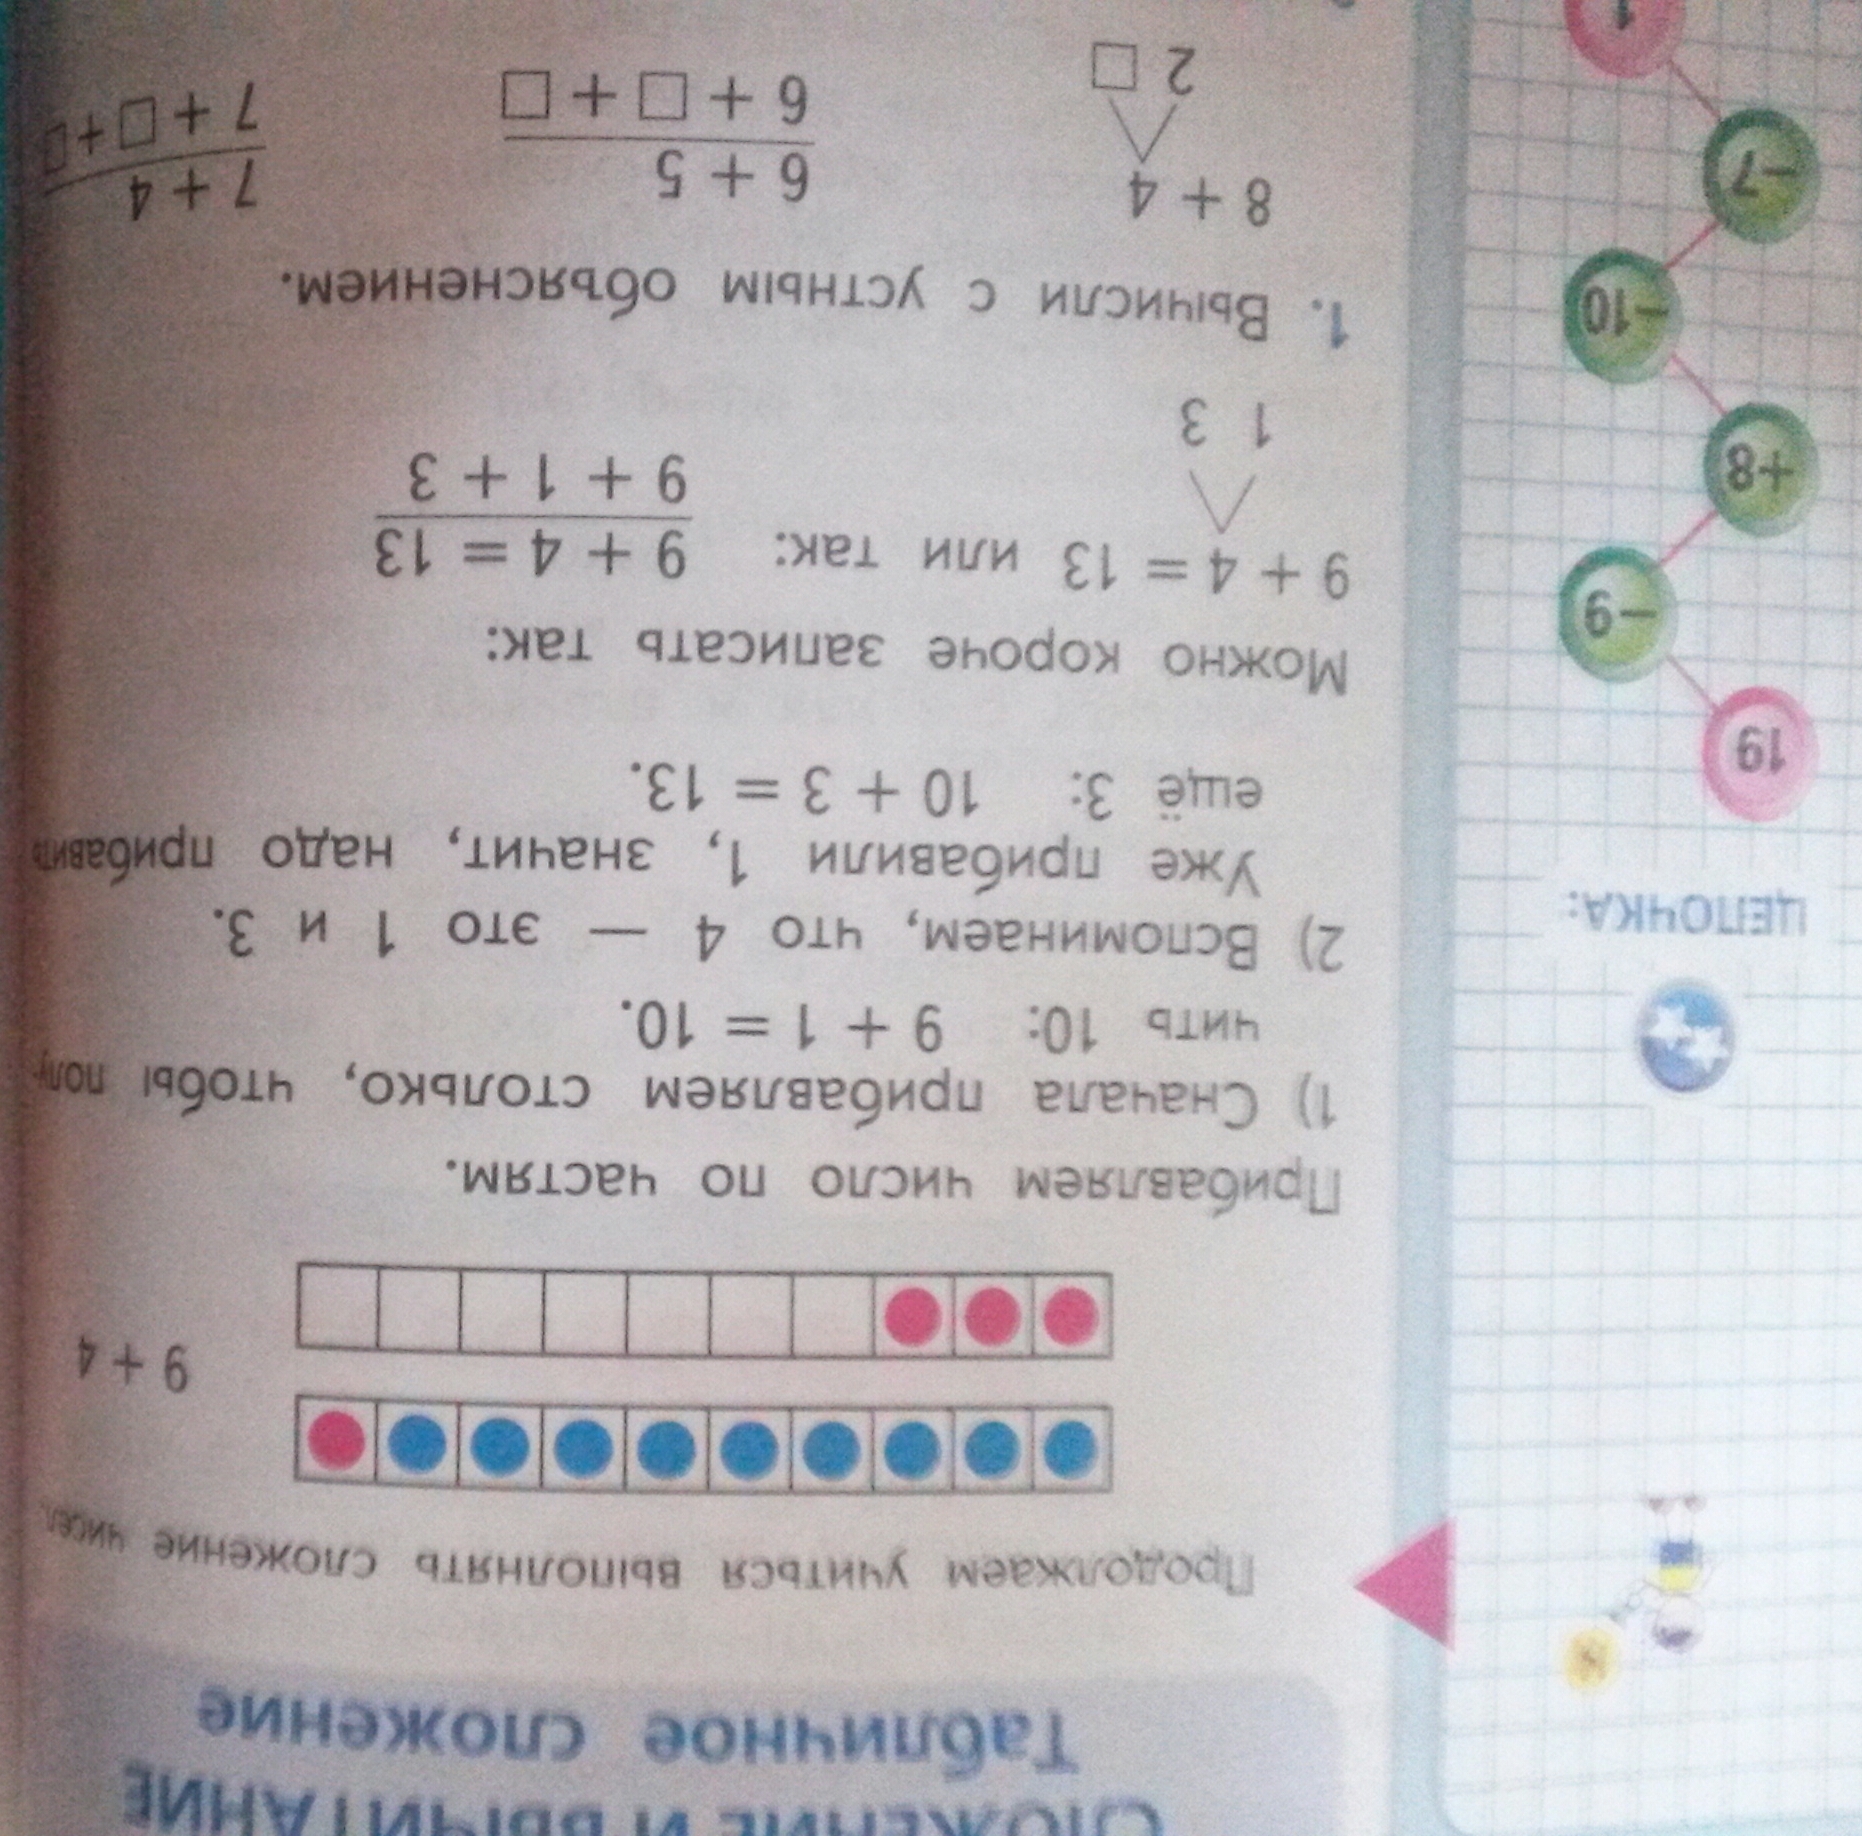 СЛОЖЕНИЕ И ВЫЧИТАНИЕ
Табличное сложение
Продолжаем учиться выполнять сложение чисел
9 + 4
Прибавляем число по частям.
1) Сначала прибавляем столько, чтобы полу-
чить 10: 9 + 1 = 10.
2) Вспоминаем, что 4 — это 1 и 3.
Уже прибавили 1, значит, надо прибавить
ещё 3: 10 + 3 = 13.
Можно короче записать так:
9 + 4 = 13 или так: 9 + 4 = 13
1 3
9 + 1 + 3
1. Вычисли с устным объяснением.
8 + 4
2 □
6 + 5
6 + □ + □
7 + 4
7 + □ + □
ЦЕПОЧКА:
19
−9
+8
−10
−7